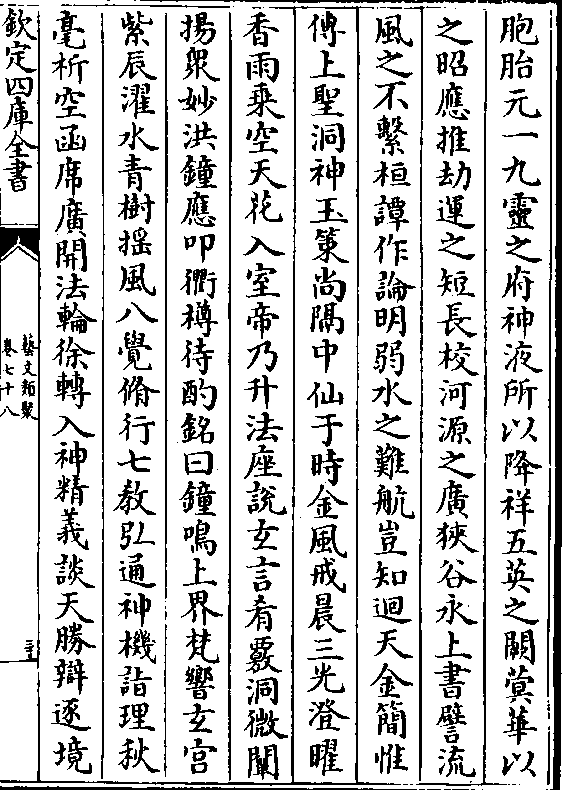 胞胎元一九靈之府神液所以降祥五英之闕蓂華以
之昭應推劫運之短長校河源之廣狹谷永上書譬流
風之不繫桓譚作論明弱水之難航豈知迴天金簡惟
傳上聖洞神玉策尚隔中仙于時金風戒晨三光澄曜
香雨乗空天花入室帝乃升法座說玄言肴覈洞微闡
揚衆妙洪鐘應叩衢樽待酌銘曰鐘鳴上界梵響玄宫
紫辰濯水青樹揺風八覺脩行七教弘通神機詣理秋
毫析空函席廣開法輪徐轉入神精義談天勝辯逐境
欽定四庫全書
藝文類聚
卷七十八